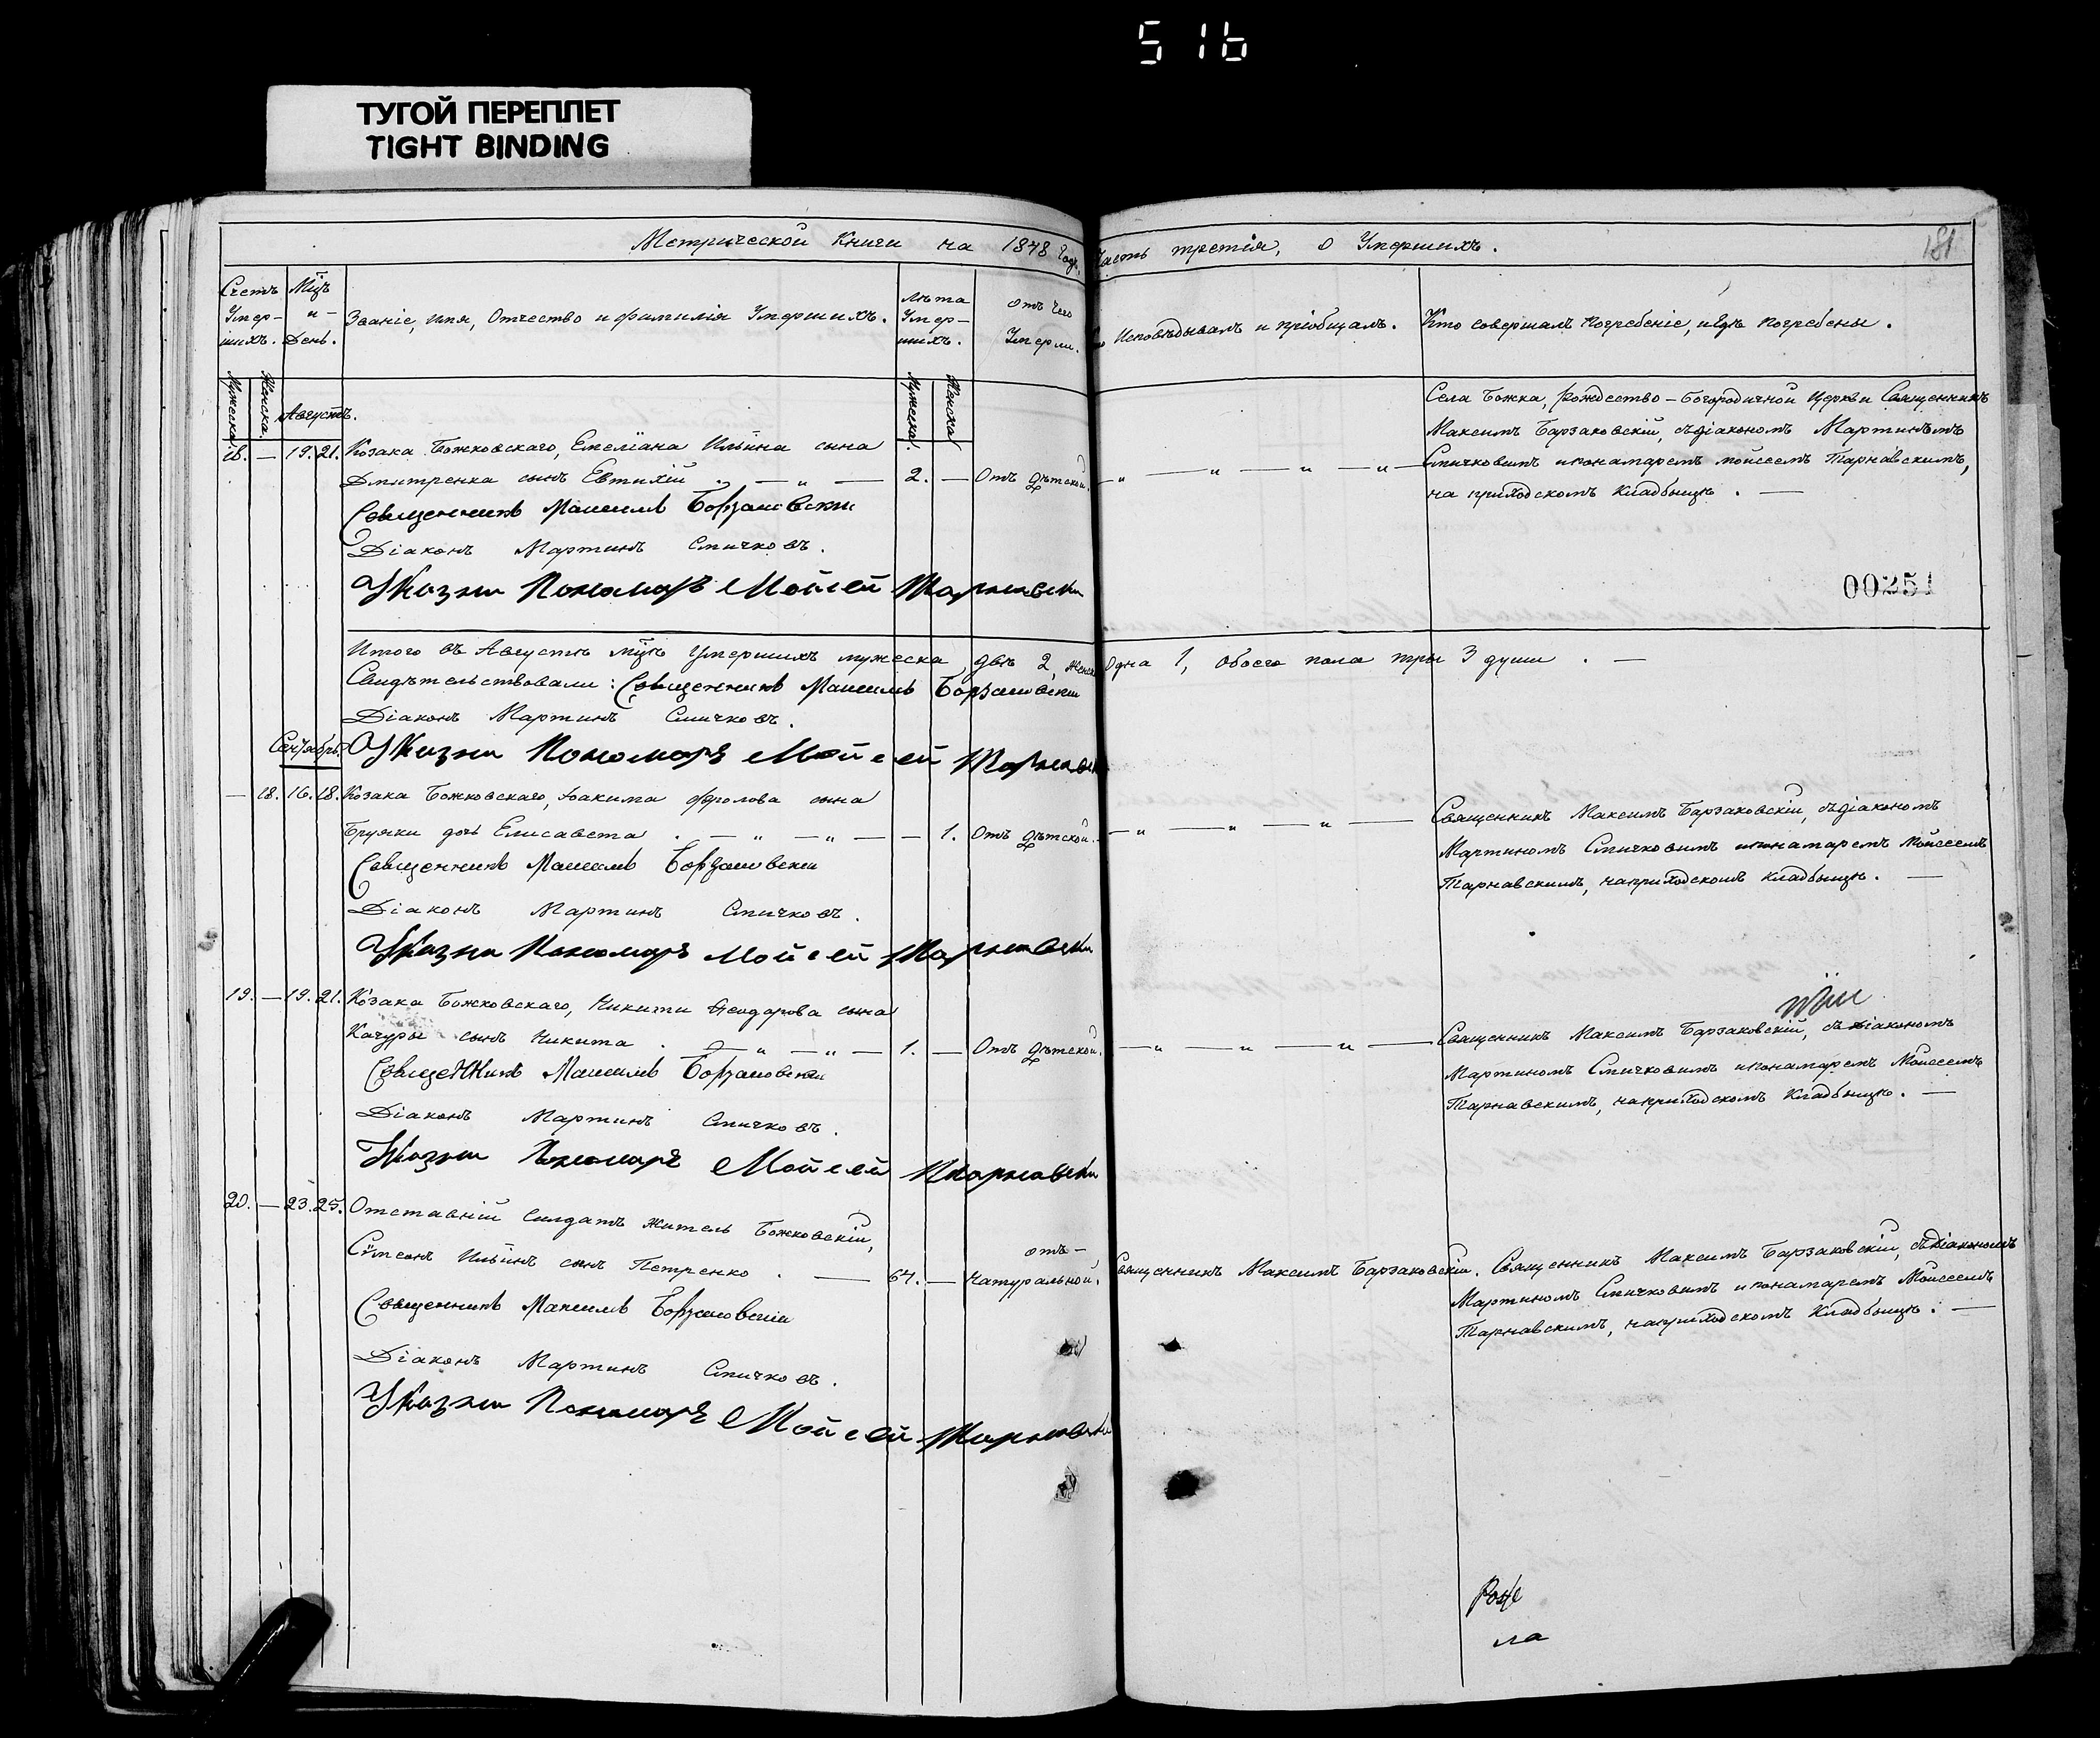 516
ТУГОЙ ПЕРЕПЛЕТ
TIGHT BINDING
Метрической Книги на 1848 Годъ, Часть третія, о Умершихъ.
181
Счетъ Умер-шихъ.
Мцъ и День.
Званіе, имя, Отчество и фамилія Умершихъ.
лѣта Умер-шихъ.
отъ чего Умерли.
Исповѣдывалъ и пріобщалъ.
Кто совершалъ погребеніе, и гдѣ погребены.
Мужеска.
Женска.
Мужеска.
Женска
Августъ.
18. — 19. 21. Козака Божковскаго, Емеліана Ильина сына
Дмитренка сынъ Евтихій . — " — 2. — Отъ дѣтской. — " — " — " —
Села Божка, Рождество-Богородичной Церкви Священникъ
Максимъ Барзаковскій, съ діакономъ Мартиномъ
Спичковимъ и понамаремъ Моисеемъ Тарнавскимъ,
на приходскомъ кладбыщѣ. —
Священникъ Максимъ Борзаковски
Діаконъ Мартинъ Спичковъ.
Указни Пономарь Мойсей Тарнавски
00251
Итого въ Августѣ мцѣ Умершихъ мужеска двѣ 2, женска Одна 1, обоего пола три 3 души. —
Свидѣтельствовали: Священникъ Максимъ Борзаковски
Діаконъ Мартинъ Спичковъ.
Сентябрь.
Указни Пономарь Мойсей Тарнавски
— 18. 16. 18. Козака Божковскаго, Іоакима Фролова сына
Бруяки дочь Елисавета . — " — " — — 1. Отъ дѣтской. — " — " — " —
Священникъ Максимъ Барзаковскіи, съ діакономъ
Мартиномъ Спичковимъ и понамаремъ Моисеемъ
Тарнавскимъ, на приходскомъ кладбыщѣ. —
Священникъ Максимъ Борзаковски
Діаконъ Мартинъ Спичковъ.
Указни Пономарь Мойсей Тарнавски
19. — 19. 21. Козака Божковскаго, Никити Ѳеодорова сына
Качуры сынъ Никита . — " — " — 1. — Отъ дѣтской. — " — " — " —
Священникъ Максимъ Барзаковскій, съ діакономъ
Мартиномъ Спичковимъ и понамаремъ Моисеемъ
Тарнавскимъ, на приходскомъ кладбыщѣ. —
Священникъ Максимъ Борзаковски
Діаконъ Мартинъ Спичковъ.
Указни Пономарь Мойсей Тарнавски
20. — 23. 25. Отставній Солдатъ житель Божковскіи,
Сѵмеонъ Ильинъ сынъ Петренко . — 64. — отъ - натуральной. Священникъ Максимъ Барзаковскіи.
Священникъ Максимъ Барзаковскіи, съ діакономъ
Мартиномъ Спичковимъ и понамаремъ Моисеемъ
Тарнавскимъ, на приходскомъ Кладбыщѣ. —
Священникъ Максимъ Борзаковскіи
Діаконъ Мартинъ Спичковъ.
Указни Пономарь Мойсей Тарнавски
ла